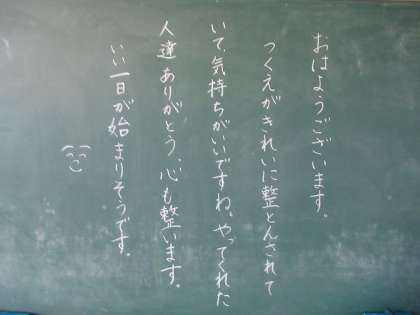 おはようございます。
つくえがきれいに整とんされて
いて、気持ちがいいですね。やってくれた
人達ありがとう、心も整います。
いい一日が始まりそうです。